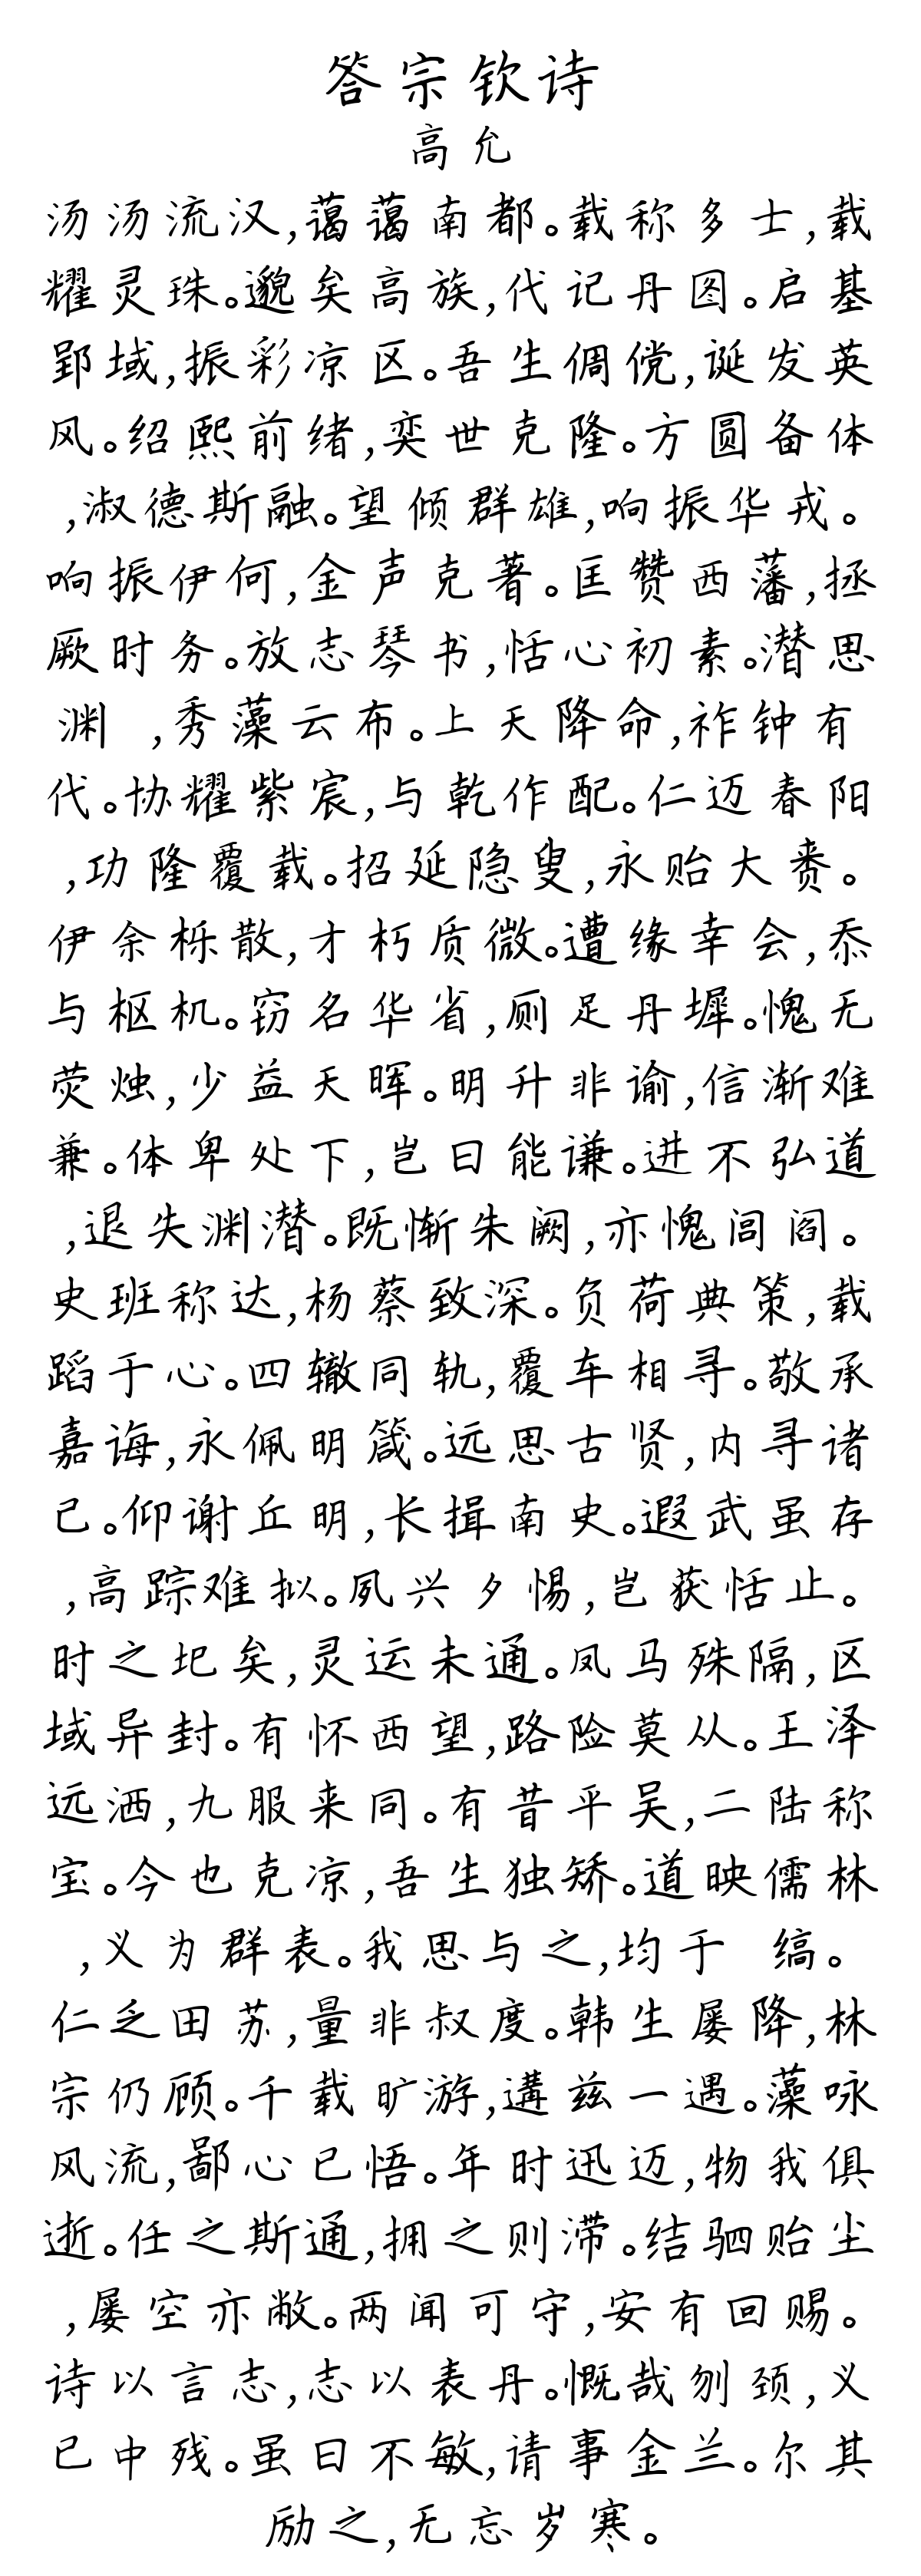 答宗钦诗
高允
汤汤流汉,蔼蔼南都。载称多士,载
耀灵珠。邈矣高族,代记丹图。启基
郢域,振彩凉区。吾生倜傥,诞发英
风。绍熙前绪,奕世克隆。方圆备体
,淑德斯融。望倾群雄,响振华戎。
响振伊何,金声克著。匡赞西藩,拯
厥时务。放志琴书,恬心初素。潜思
渊 ,秀藻云布。上天降命,祚钟有
代。协耀紫宸,与乾作配。仁迈春阳
,功隆覆载。招延隐叟,永贻大赉。
伊余栎散,才朽质微。遭缘幸会,忝
与枢机。窃名华省,厕足丹墀。愧无
荧烛,少益天晖。明升非谕,信渐难
兼。体卑处下,岂曰能谦。进不弘道
,退失渊潜。既惭朱阙,亦愧闾阎。
史班称达,杨蔡致深。负荷典策,载
蹈于心。四辙同轨,覆车相寻。敬承
嘉诲,永佩明箴。远思古贤,内寻诸
己。仰谢丘明,长揖南史。遐武虽存
,高踪难拟。夙兴夕惕,岂获恬止。
时之圯矣,灵运未通。风马殊隔,区
域异封。有怀西望,路险莫从。王泽
远洒,九服来同。有昔平吴,二陆称
宝。今也克凉,吾生独矫。道映儒林
,义为群表。我思与之,均于 缟。
仁乏田苏,量非叔度。韩生屡降,林
宗仍顾。千载旷游,遘兹一遇。藻咏
风流,鄙心已悟。年时迅迈,物我俱
逝。任之斯通,拥之则滞。结驷贻尘
,屡空亦敝。两闻可守,安有回赐。
诗以言志,志以表丹。慨哉刎颈,义
已中残。虽曰不敏,请事金兰。尔其
励之,无忘岁寒。